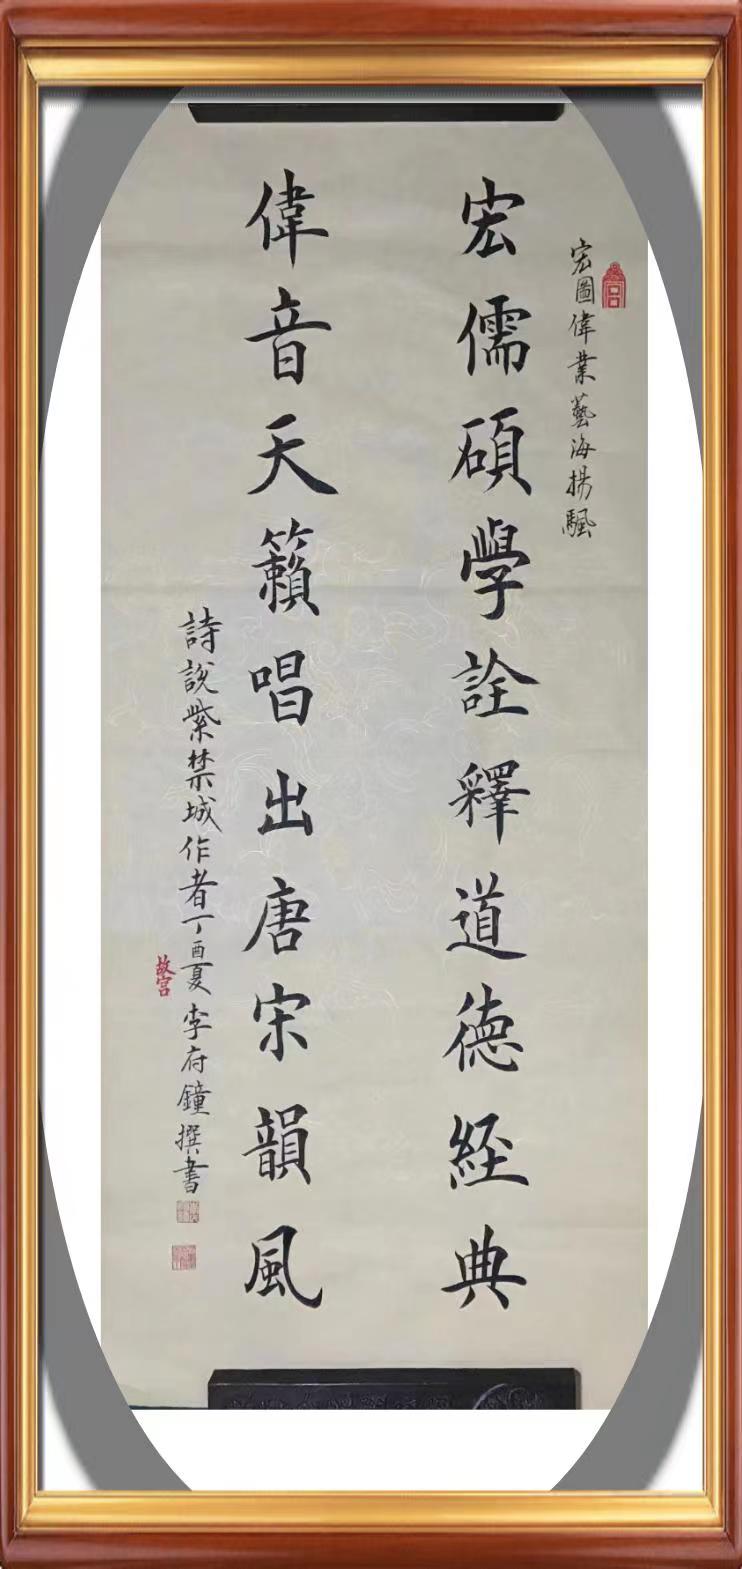 宏圖偉業藝海揚颿
宏儒碩學詮釋道德經典
偉音天籟唱出唐宋韻風
詩說紫禁城作者丁酉夏李府鐘撰書
故宮